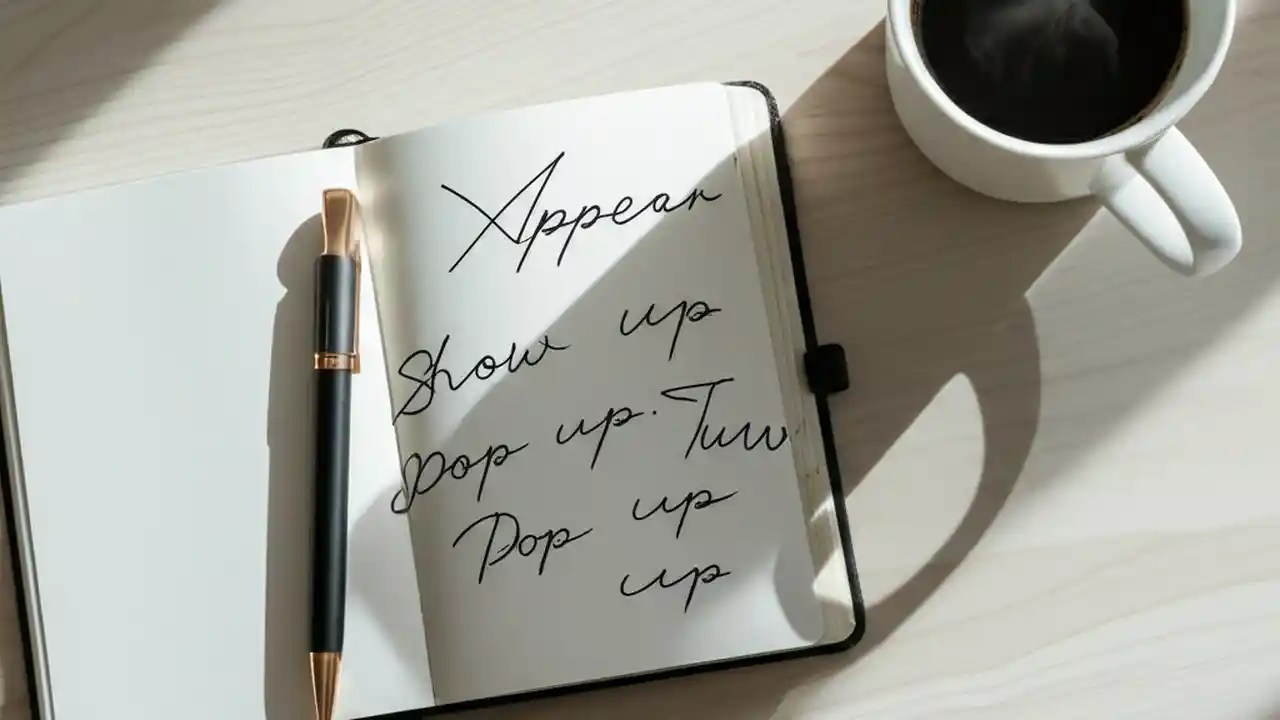 Appear
Show up
Pop up. Tuw
Pop up
up